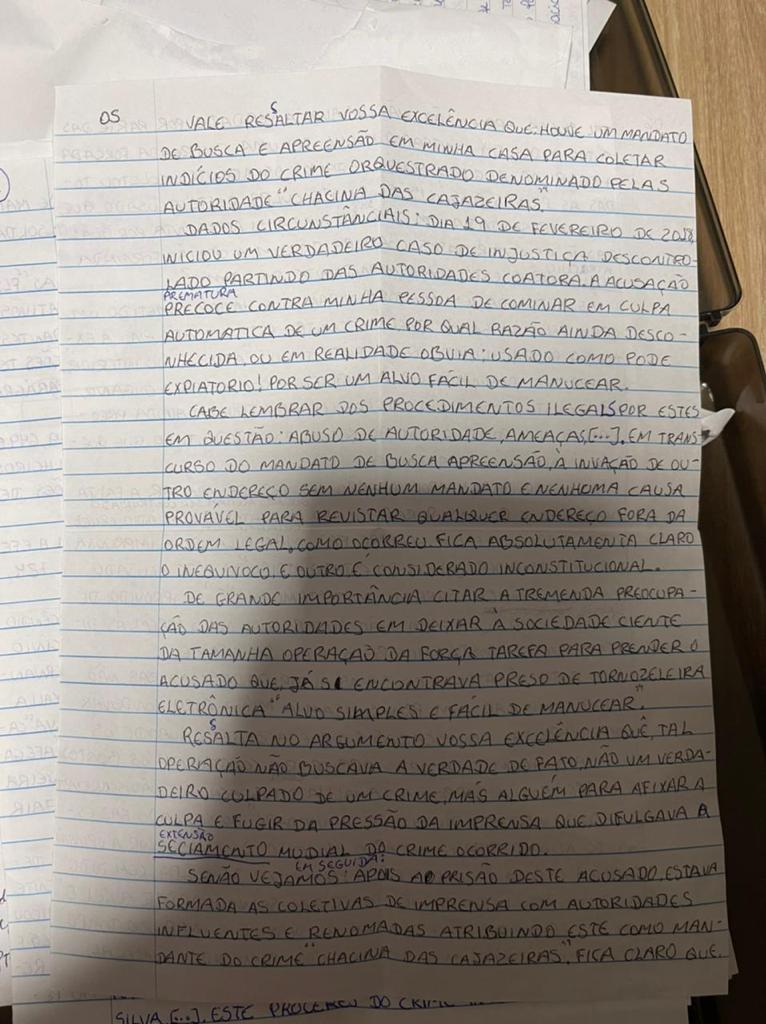 05
VALE RESSALTAR VOSSA EXCELÊNCIA QUE: HOUVE UM MANDATO
DE BUSCA E APREENSÃO EM MINHA CASA PARA COLETAR
INDÍCIOS DO CRIME ORQUESTRADO DENOMINADO PELAS
AUTORIDADE "CHACINA DAS CAJAZEIRAS."
DADOS CIRCUNSTÂNCIAIS: DIA 19 DE FEVEREIRO DE 2018,
INICIOU UM VERDADEIRO CASO DE INJUSTIÇA DESCONTRO-
LADO PARTINDO DAS AUTORIDADES COATORA. A ACUSAÇÃO
PREMATURA
PRECOCE CONTRA MINHA PESSOA DE COMINAR EM CULPA
AUTOMATICA DE UM CRIME POR QUAL RAZÃO AINDA DESCO-
NHECIDA, OU EM REALIDADE OBVIA: USADO COMO PODE
EXPIATORIO! POR SER UM ALVO FÁCIL DE MANUCEAR.
CABE LEMBRAR DOS PROCEDIMENTOS ILEGAIS POR ESTES
EM QUESTÃO: ABUSO DE AUTORIDADE, AMEAÇAS, [...], EM TRANS-
CURSO DO MANDATO DE BUSCA APREENSÃO, À INVAÇÃO DE OU-
TRO ENDEREÇO SEM NENHUM MANDATO E NENHUMA CAUSA
PROVÁVEL PARA REVISTAR QUALQUER ENDEREÇO FORA DA
ORDEM LEGAL, COMO OCORREU FICA ABSOLUTAMENTA CLARO
O INEQUIVOCO, E OUTRO É CONSIDERADO INCONSTITUCIONAL.
DE GRANDE IMPORTÂNCIA CITAR A TREMENDA PREOCUPA-
ÇÃO DAS AUTORIDADES EM DEIXAR À SOCIEDADE CIENTE
DA TAMANHA OPERAÇÃO DA FORÇA TAREFA PARA PRENDER O
ACUSADO QUE, JÁ SE ENCONTRAVA PRESO DE TORNOZELEIRA
ELETRÔNICA "ALVO SIMPLES E FÁCIL DE MANUCEAR."
RESSALTA NO ARGUMENTO VOSSA EXCELÊNCIA QUE, TAL
OPERAÇÃO NÃO BUSCAVA A VERDADE DE FATO, NÃO UM VERDA-
DEIRO CULPADO DE UM CRIME, MAS ALGUÉM PARA AFIXAR A
CULPA E FUGIR DA PRESSÃO DA IMPRENSA QUE DIFULGAVA A
EXTENSÃO
SECIAMENTO MUDIAL DO CRIME OCORRIDO.
EM SEGUIDA:
SENÃO VEJAMOS: APOIS A PRISÃO DESTE ACUSADO, ESTAVA
FORMADA AS COLETIVAS DE IMPRENSA COM AUTORIDADES
INFLUENTES E RENOMADAS ATRIBUINDO ESTE COMO MAN-
DANTE DO CRIME "CHACINA DAS CAJAZEIRAS", FICA CLARO QUE.
SILVA, [...]. ESTE PROCEREU DO CRIME